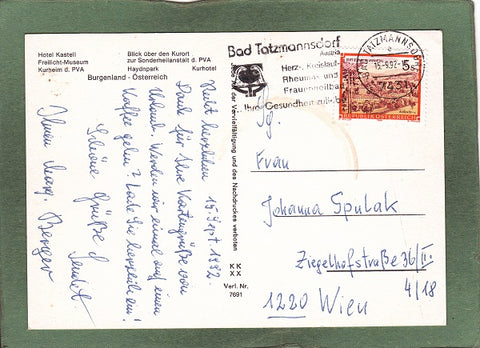 Hotel Kastell
Freilicht-Museum
Kurheim d. PVA
Blick über den Kurort
zur Sonderheilanstalt d. PVA
Haydnpark Kurhotel
Burgenland - Österreich
Bad Tatzmannsdorf
Austria
Herz-, Kreislauf-,
Rheuma- und
Frauenheilbad
Ihrer Gesundheit zuliebe
TATZMANNSDORF
15.-9.92-15
7431
5S
REPUBLIK ÖSTERREICH
der Vervielfältigung und des Nachdruckes verboten
K K
X X
Verl. Nr.
7691
15. Sept. 1992.
Recht herzlichen
Dank für Ihre Kartengrüße vom
Urlaub. Werden wir einmal auf einen
Kaffee gehn? Lade Sie herzlich ein!
Schöne Grüße
sendet
Ihnen Marg. Berger
Fr.
Frau
Johanna Spulak
Ziegelhofstraße 36/II.
4/18
1220 Wien